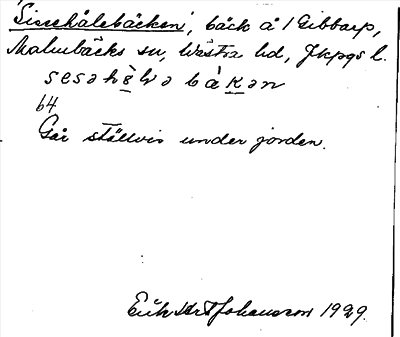 Sissehålebäcken, bäck å / Gibbarp,
Malmbäcks sn, Västra hd, Jkpgs l.
sesəhŏ̀lə bàkən
64
Går ställvis under jorden.
Erik Johansson 1929.